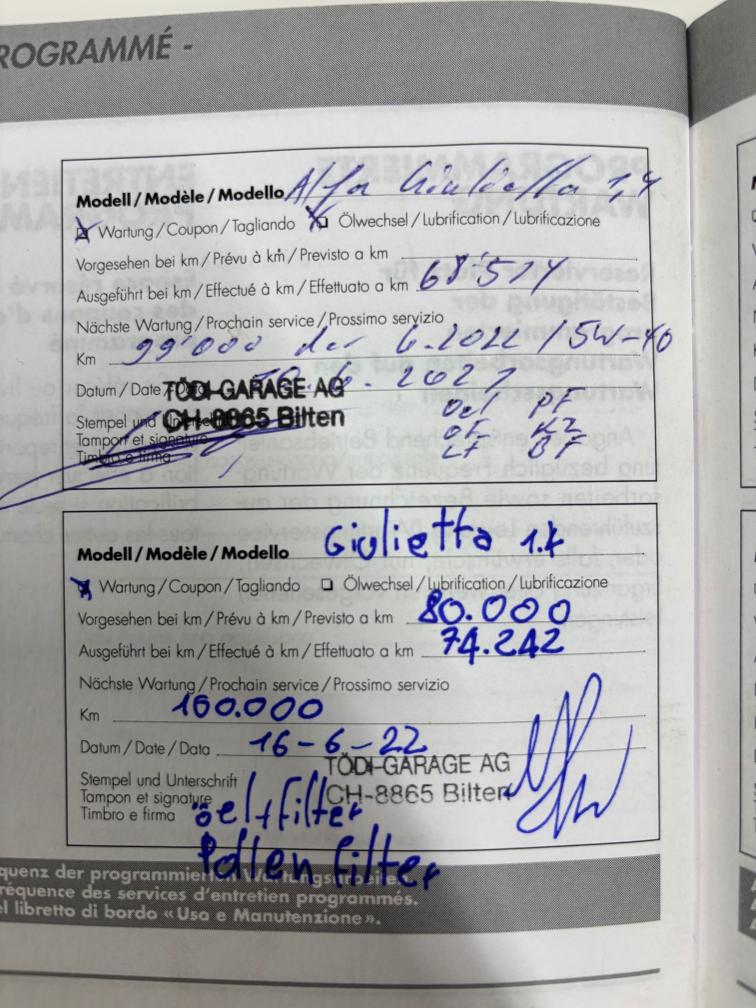 PROGRAMMÉ -
Modell / Modèle / Modello Alfa Giulietta 1,4
X Wartung / Coupon / Tagliando X Ölwechsel / Lubrification / Lubrificazione
Vorgesehen bei km / Prévu à km / Previsto a km
Ausgeführt bei km / Effectué à km / Effettuato a km 68'514
Nächste Wartung / Prochain service / Prossimo servizio
Km 99'000 6.2022 5W-40
Datum / Date / Data 6.2021
TÖDI-GARAGE AG
Stempel und Unterschrift Oel PF
CH-8865 Bilten
Tampon et signature OF KZ
Timbro e firma LF BF
Modell / Modèle / Modello Giulietta 1.4
X Wartung / Coupon / Tagliando ☐ Ölwechsel / Lubrification / Lubrificazione
Vorgesehen bei km / Prévu à km / Previsto a km 80.000
Ausgeführt bei km / Effectué à km / Effettuato a km 74.242
Nächste Wartung / Prochain service / Prossimo servizio
Km 100.000
Datum / Date / Data 16-6-22
TÖDI-GARAGE AG
Stempel und Unterschrift
CH-8865 Bilten
Tampon et signature
Timbro e firma öel+filter
Pollen filter
quenz der programmierten Wartungsarbeiten
réquence des services d'entretien programmés.
el libretto di bordo «Uso e Manutenzione».